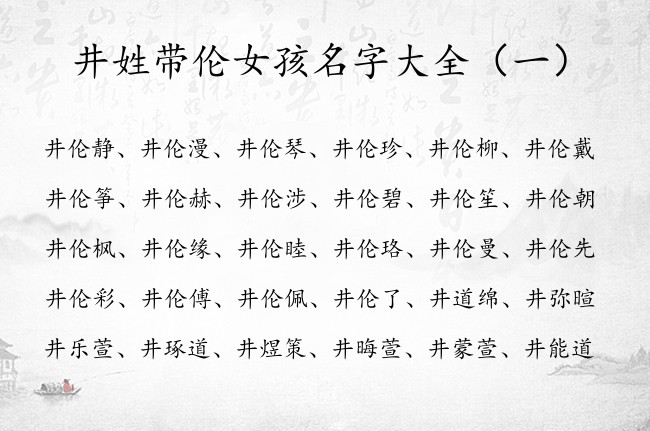 井姓带伦女孩名字大全（一）
井伦静、井伦漫、井伦琴、井伦珍、井伦柳、井伦戴
井伦筝、井伦赫、井伦涉、井伦碧、井伦笙、井伦朝
井伦枫、井伦缘、井伦睦、井伦珞、井伦曼、井伦先
井伦彩、井伦傅、井伦佩、井伦了、井道绵、井弥暄
井乐萱、井琢道、井煜策、井晦萱、井蒙萱、井能道